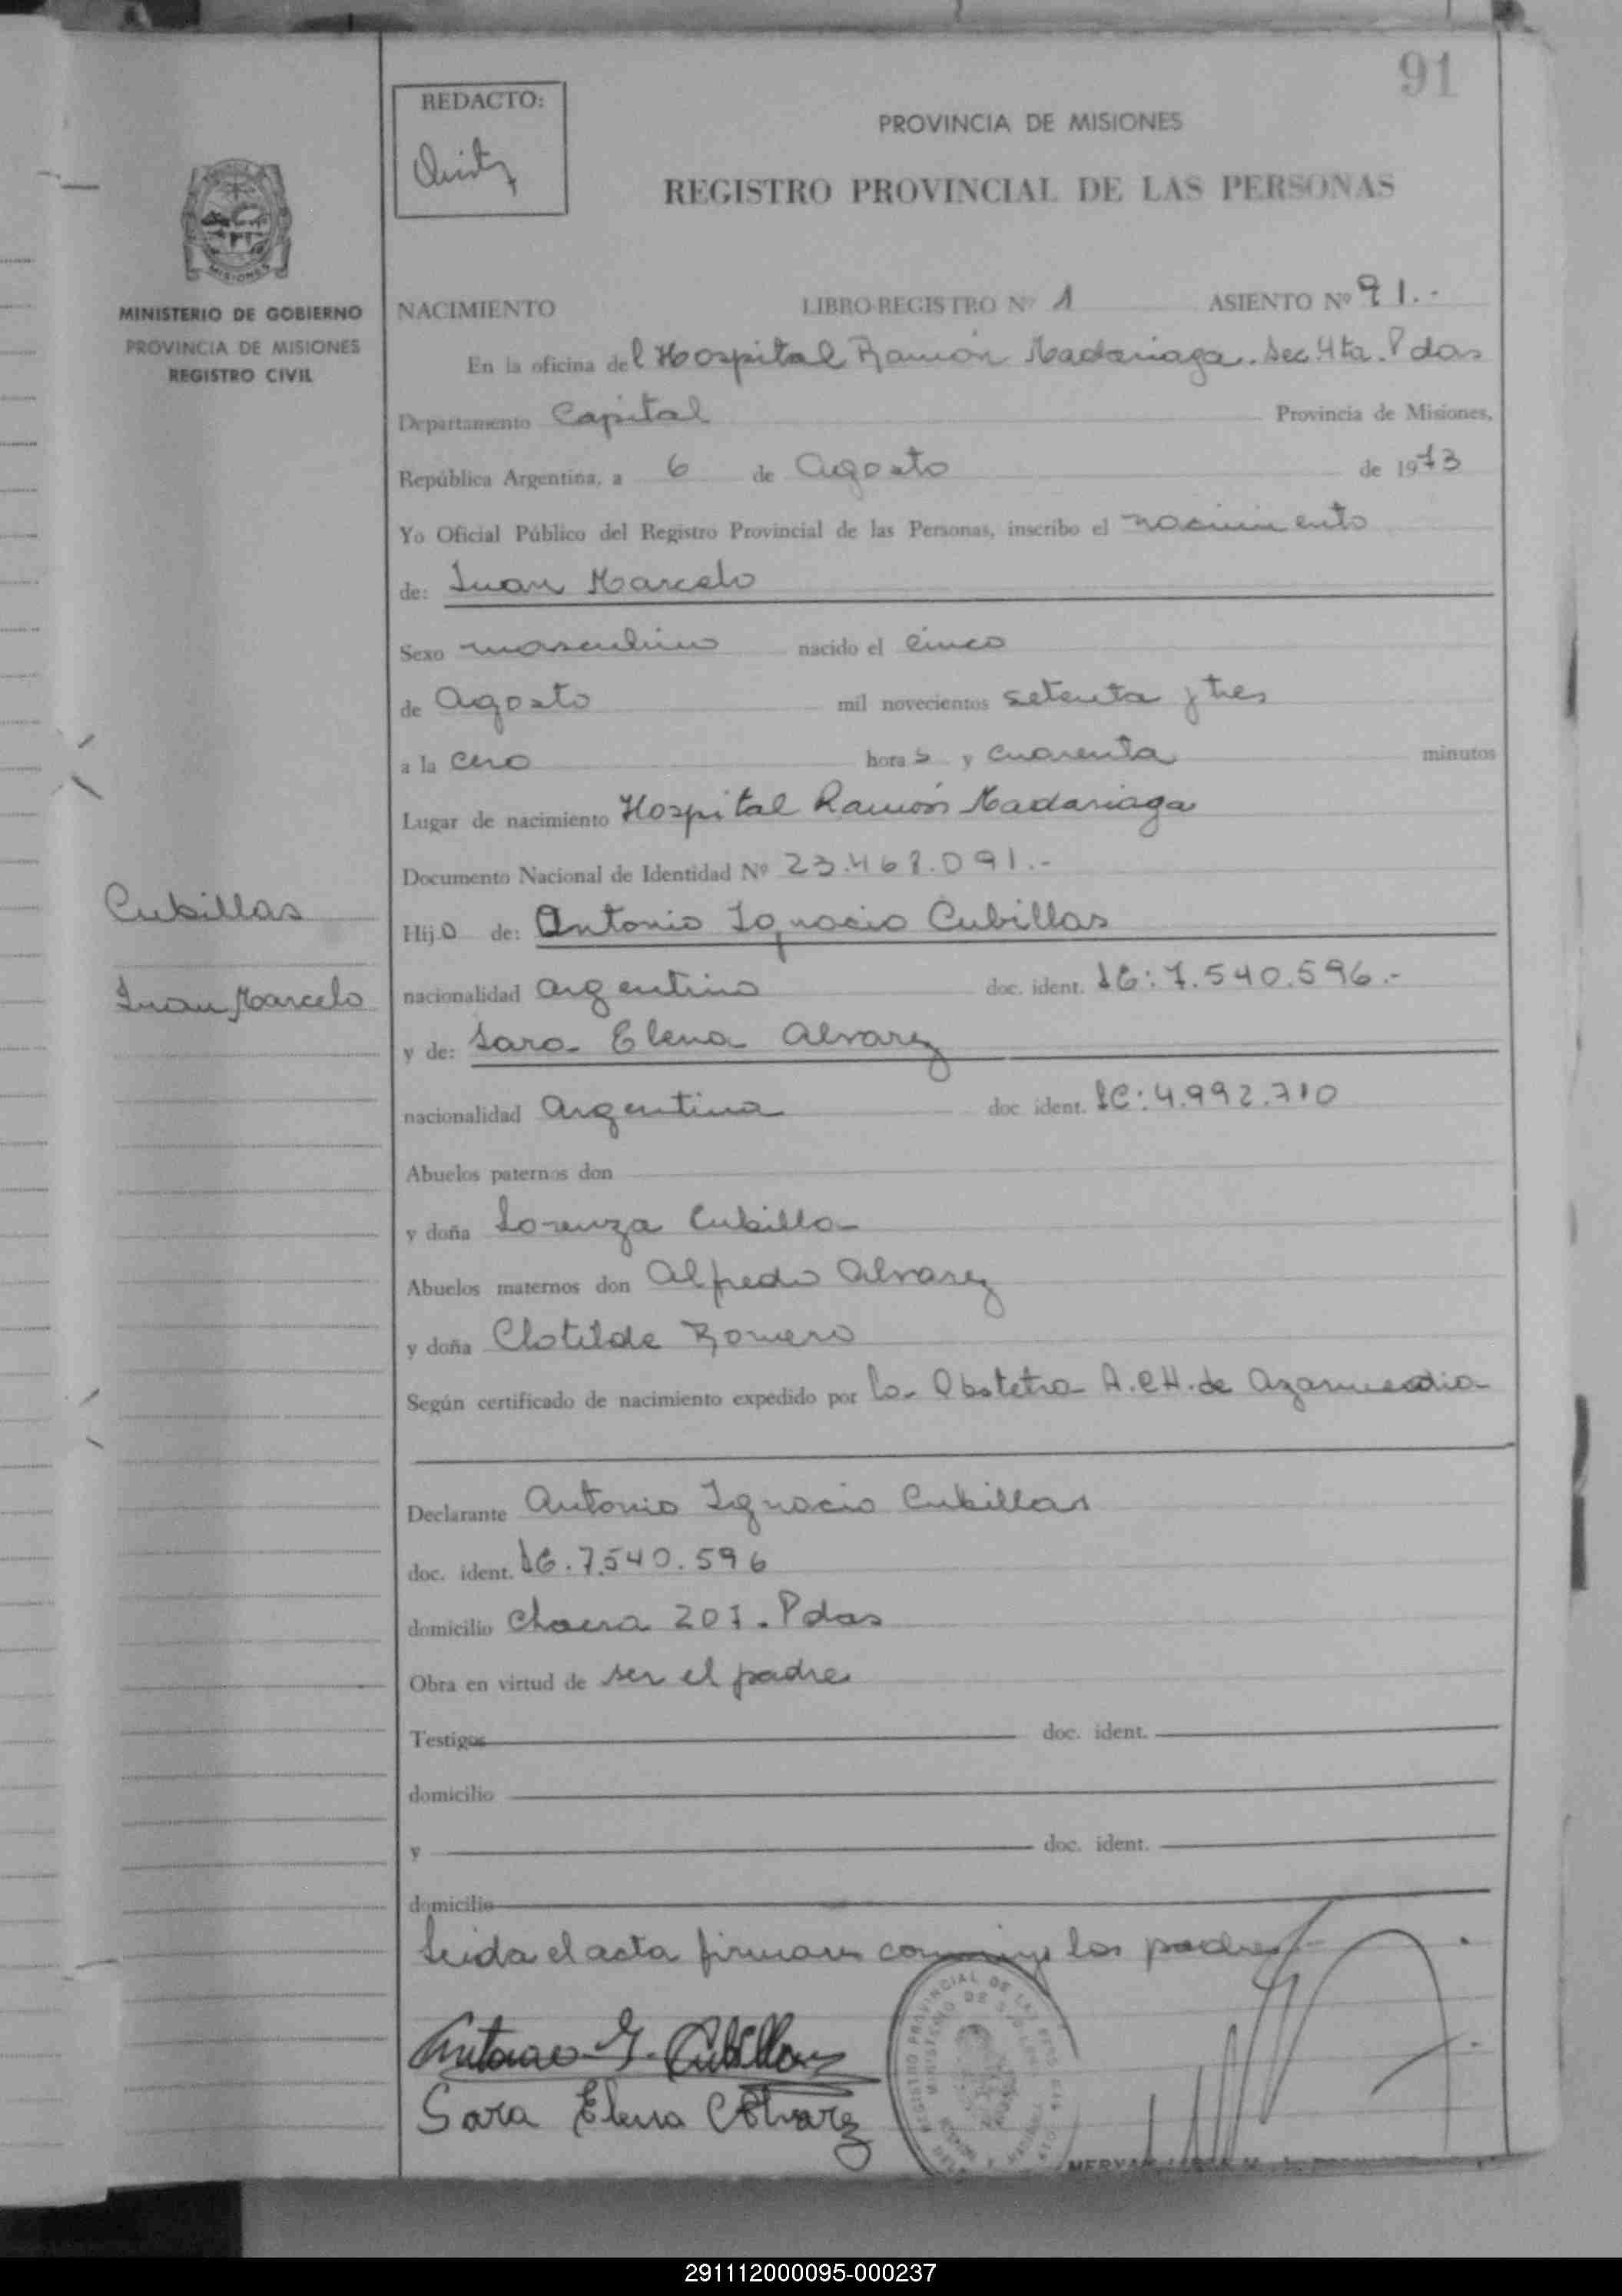 91
REDACTO:
PROVINCIA DE MISIONES
REGISTRO PROVINCIAL DE LAS PERSONAS
MISIONES
MINISTERIO DE GOBIERNO
PROVINCIA DE MISIONES
REGISTRO CIVIL
NACIMIENTO LIBRO-REGISTRO Nº 1 ASIENTO Nº 91.-
En la oficina del Hospital Ramón Madariaga. Sec 4ta. Pdas
Departamento Capital Provincia de Misiones,
República Argentina, a 6 de Agosto de 1973
Yo Oficial Público del Registro Provincial de las Personas, inscribo el nacimiento
de: Juan Marcelo
Sexo masculino nacido el cinco
de Agosto mil novecientos setenta y tres
a la cero horas y cuarenta minutos
Lugar de nacimiento Hospital Ramón Madariaga
Documento Nacional de Identidad Nº 23.468.091.-
Cubillas
Juan Marcelo
Hijo de: Antonio Ignacio Cubillas
nacionalidad argentino doc. ident. LE: 7.540.596.-
y de: Sara Elena Alvarez
nacionalidad Argentina doc. ident. LC: 4.992.710
Abuelos paternos don
y doña Lorenza Cubilla
Abuelos maternos don Alfredo Alvarez
y doña Clotilde Romero
Según certificado de nacimiento expedido por la Obstetra A.CH. de
Declarante Antonio Ignacio Cubillas
doc. ident. LE. 7.540.596
domicilio Chacra 201. Pdas
Obra en virtud de ser el padre
Testigos doc. ident.
domicilio
y doc. ident.
domicilio
Leida el acta firman conmigo los padres.-
Antonio I. Cubillas
Sara Elena Alvarez
REGISTRO PROVINCIAL DE LAS
MINISTERIO DE
291112000095-000237